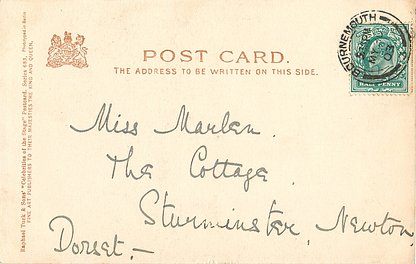 POST CARD.
THE ADDRESS TO BE WRITTEN ON THIS SIDE.
BOURNEMOUTH
HALF PENNY
Miss Marlen.
The Cottage
Sturminster, Newton
Dorset.—
Raphael Tuck & Sons' "Celebrities of the Stage" Postcard. Series 683. Photographed in Berlin
FINE ART PUBLISHERS TO THEIR MAJESTIES THE KING AND QUEEN.